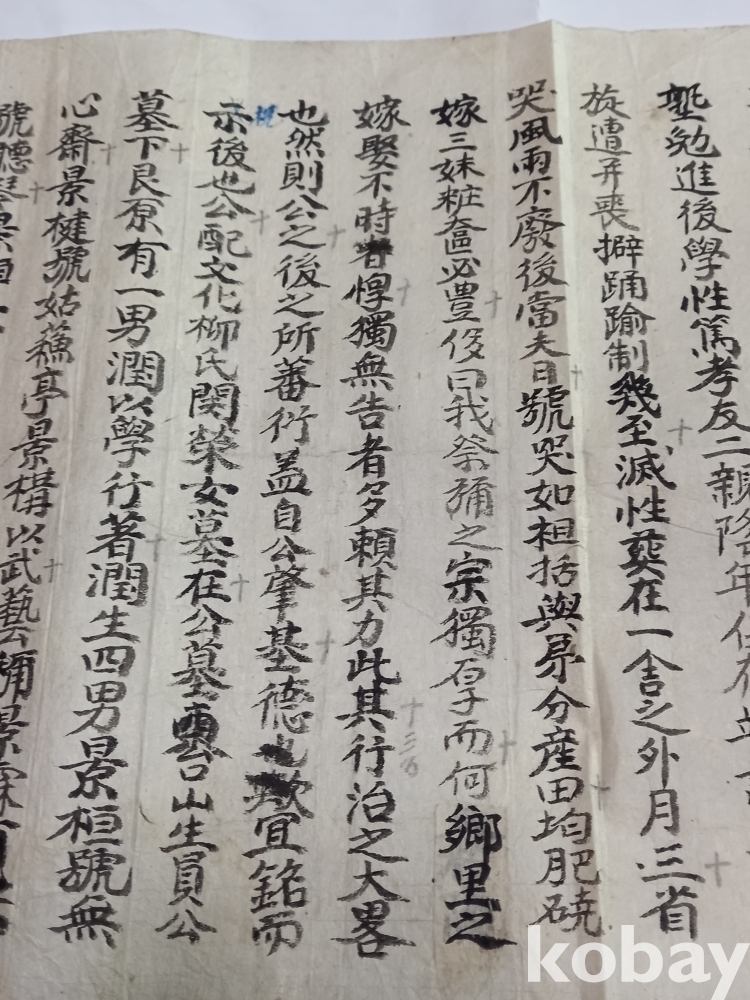 塾勉進後學性篤孝友二親
旋遭幷喪擗踊踰制幾至滅性葬在一舍之外月三省
哭風雨不廢後當夫日號哭如袒括與弟分産田均肥磽
嫁三妹粧奩必豊侈曰我祭禰之宗獨厚而何鄕里之
嫁娶不時者惸獨無告者多賴其力此其行治之大畧
也然則公之後之所蕃衍盖自公肇基德也歟宜銘而
示後也公配文化柳氏関榮女墓在公墓雲台山生員公
墓下艮原有一男潤以學行著潤生四男景桓號無
心齋景楗號姑蘓亭景構以武藝
號聽琴
kobay